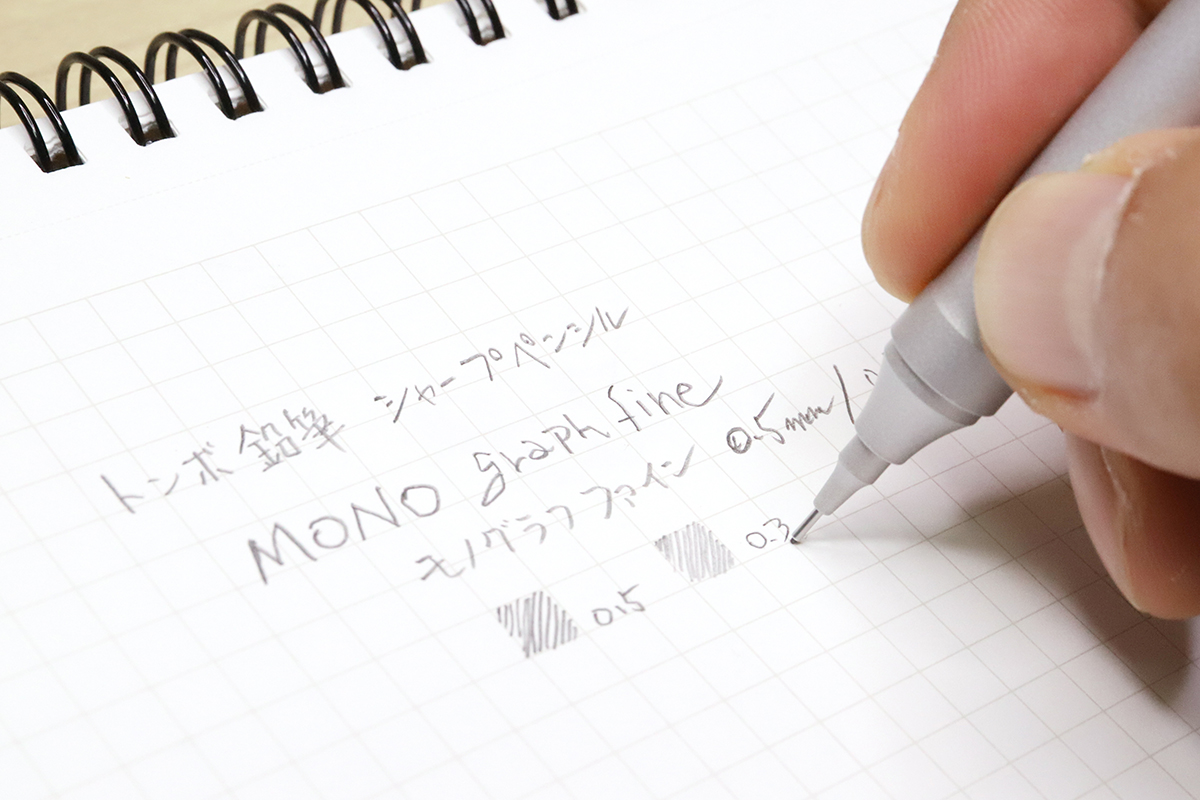 トンボ鉛筆 シャープペンシル
MONO graph fine
モノグラフファイン 0.5mm/
0.5
0.3